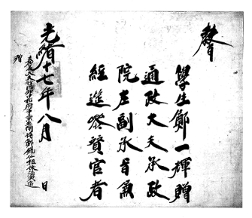 敎旨
學生鄭一輝贈
通政大夫承政
院左副承旨兼
經筵參贊官者
光緖十七年八月 日